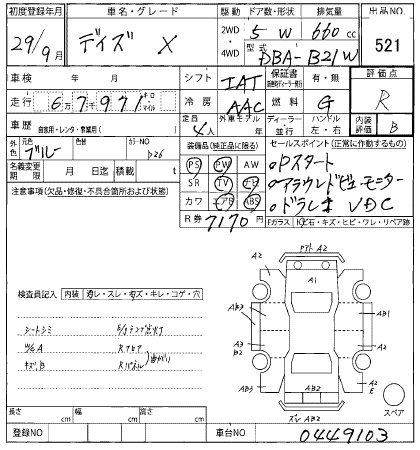 初度登録年月 車名・グレード 駆動 ドア数・形状 排気量 出品NO.
29/9月 デイズ X 2WD・4WD 5 W 660 cc 521
型式 DBA-B21W
車検 年 月 シフト IAT 保証書 有・無 評価点
走行 6万7千971 キロ・マイル 冷房 AAC 燃料 G R
車歴 自家用・レンタ・事業用( ) 定員 4人 外車モデル 年 ディーラー 並行 ハンドル 左・右 内装 B
外色 元色 ブルー 色替 カラーNO B26
名義変更期限 月 日迄 積載 t
装備品(純正品に限る) セールスポイント(正常に動作するもの)
PS PW AW
SR TV ナビ
カワ エアB ABS
oPスタート
oアラウンドビューモニター
oドラレコ VDC
R券 7170円
注意事項(欠品・修復・不具合箇所および状態)
Fガラス 飛石・キズ・ヒビ・ワレ・リペア跡
検査員記入 内装 汚レ・スレ・キズ・キレ・コゲ・穴
シートシミ
W/G A
キズ、B
Rフロア
Rパネル
曲がり
ドアト A2
A2
A1
A2
AB3
AB1
A3
B2
AB3
AB2
A2
E
スペア
ズレ AB2
長さ cm 幅 cm 高さ cm
登録NO 車台NO. 0449103